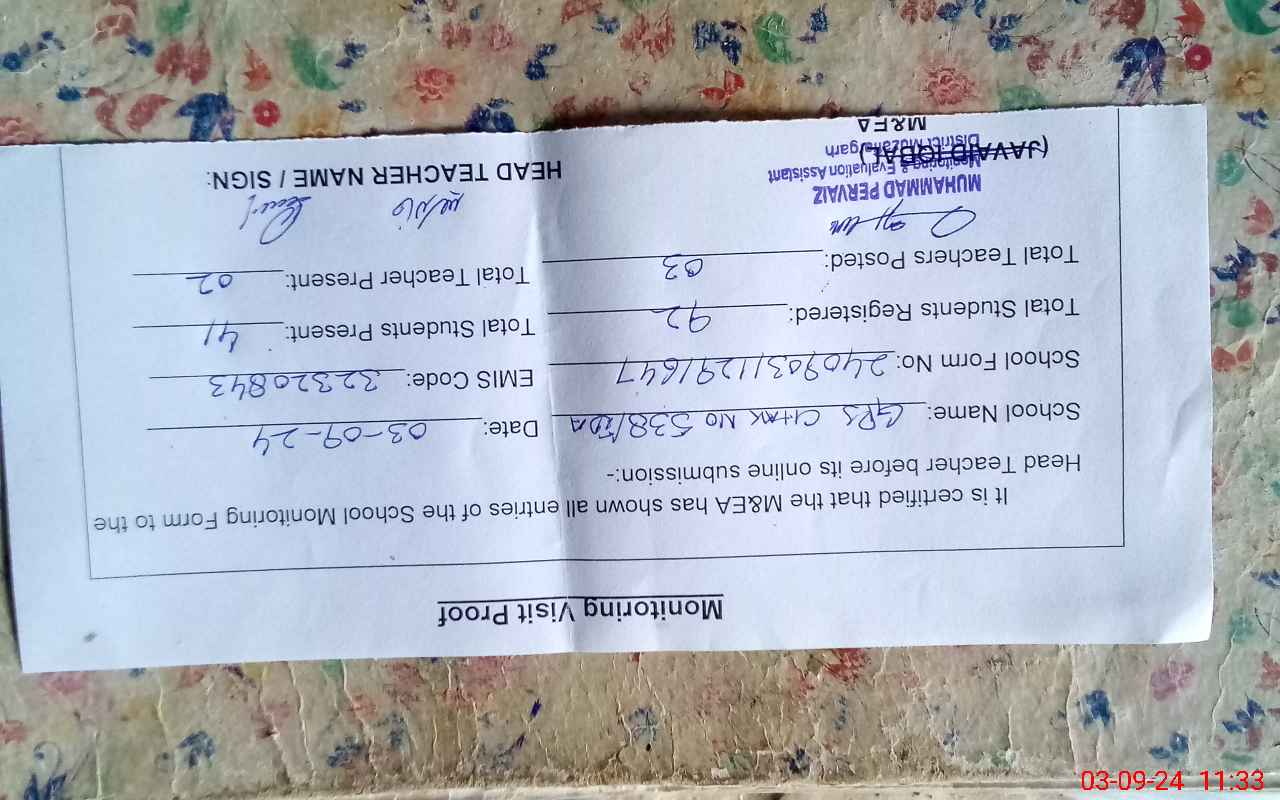 Monitoring Visit Proof
It is certified that the M&EA has shown all entries of the School Monitoring Form to the
Head Teacher before its online submission:-
School Name: GPS CHAK NO 538/TDA Date: 03-09-24
School Form No: 24090311291647 EMIS Code: 32320843
Total Students Registered: 92 Total Students Present: 41
Total Teachers Posted: 03 Total Teacher Present: 02
MUHAMMAD PERVAIZ
Monitoring & Evaluation Assistant
District Muzaffargarh
(JAVAID IQBAL) HEAD TEACHER NAME / SIGN:
M&EA
03-09-24 11:33